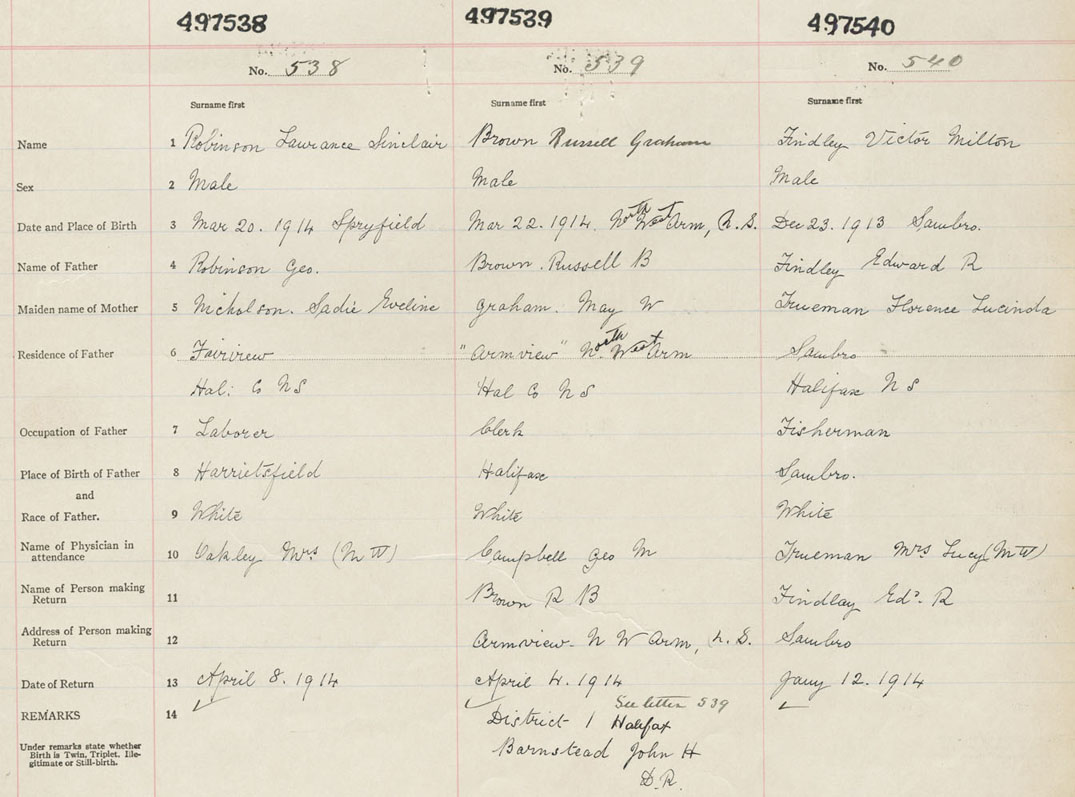 497538 497539 497540
No. 538 No. 539 No. 540
Surname first Surname first Surname first
Name 1 Robinson Lawrance Sinclair Brown Russell Graham Findley Victor Milton
Sex 2 Male Male Male
Date and Place of Birth 3 Mar 20. 1914 Spryfield Mar 22. 1914. North West Arm, N.S. Dec 23. 1913 Sambro.
Name of Father 4 Robinson Geo. Brown. Russell B Findley Edward R
Maiden name of Mother 5 Nicholson. Sadie Eveline Graham. May W Trueman Florence Lucinda
Residence of Father 6 Fairview "Armview" North West Arm Sambro
Hal: Co N S Hal Co N S Halifax N S
Occupation of Father 7 Laborer Clerk Fisherman
Place of Birth of Father 8 Harrietsfield Halifax Sambro.
and
Race of Father. 9 White White White
Name of Physician in
attendance 10 Oakley Mrs (M W) Campbell Geo M Trueman Mrs Lucy (M W)
Name of Person making
Return 11 Brown R B Findlay Edd. R
Address of Person making
Return 12 Armview. N W Arm, N.S. Sambro
Date of Return 13 April 8. 1914 April 4. 1914 Jany 12. 1914
See letter 539
REMARKS 14 District 1 Halifax
Under remarks state whether
Birth is Twin, Triplet, Ille-
gitimate or Still-birth.
Barnstead John H
D.R.